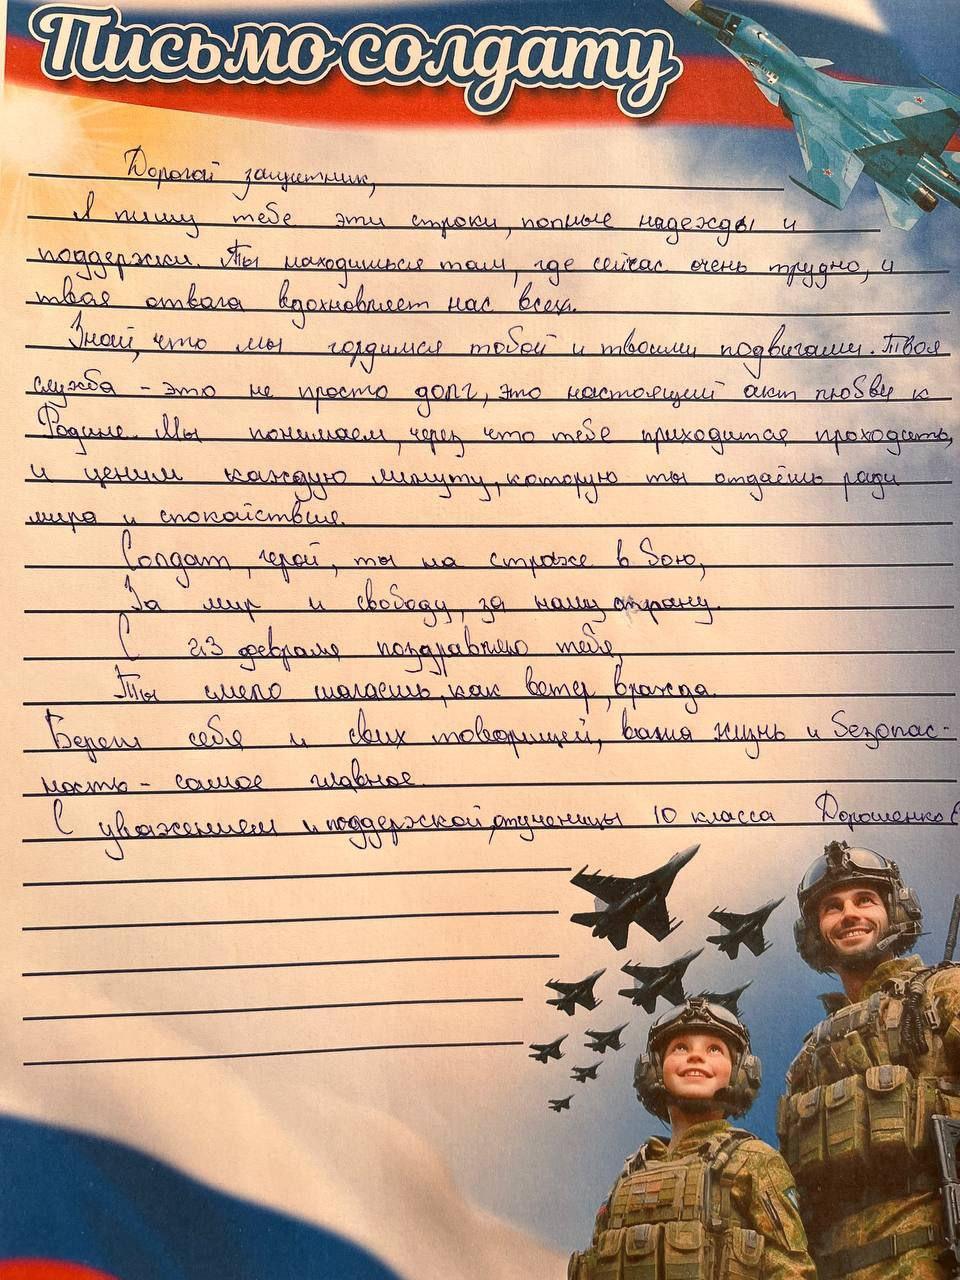 Письмо солдату
Дорогой защитник,
Я пишу тебе эти строки, полные надежды и
поддержки. Ты находишься там, где сейчас очень трудно, и
твоя отвага вдохновляет нас всех.
Знай, что мы гордимся тобой и твоими подвигами. Твоя
служба - это не просто долг, это настоящий акт любви к
Родине. Мы понимаем, через что тебе приходится проходить,
и ценим каждую минуту, которую ты отдаёшь ради
мира и спокойствия.
Солдат, герой, ты на страже в бою,
За мир и свободу, за нашу страну.
С 23 февраля поздравляю тебя,
Ты смело шагаешь, как ветер, вражда.
Береги себя и своих товарищей, ваша жизнь и безопас-
ность - самое главное.
С уважением и поддержкой, от ученицы 10 класса Дорошенко Е